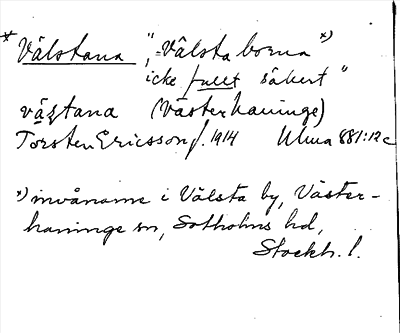 * Välstana, "=Välsta borna *)
icke fullt säkert"
väʂtana (Västerhaninge)
Torsten Ericsson f. 1914 Ulma 881:12c
*) invånarne i Välsta by, Väster-
haninge sn, Sotholms hd,
Stockh. l.